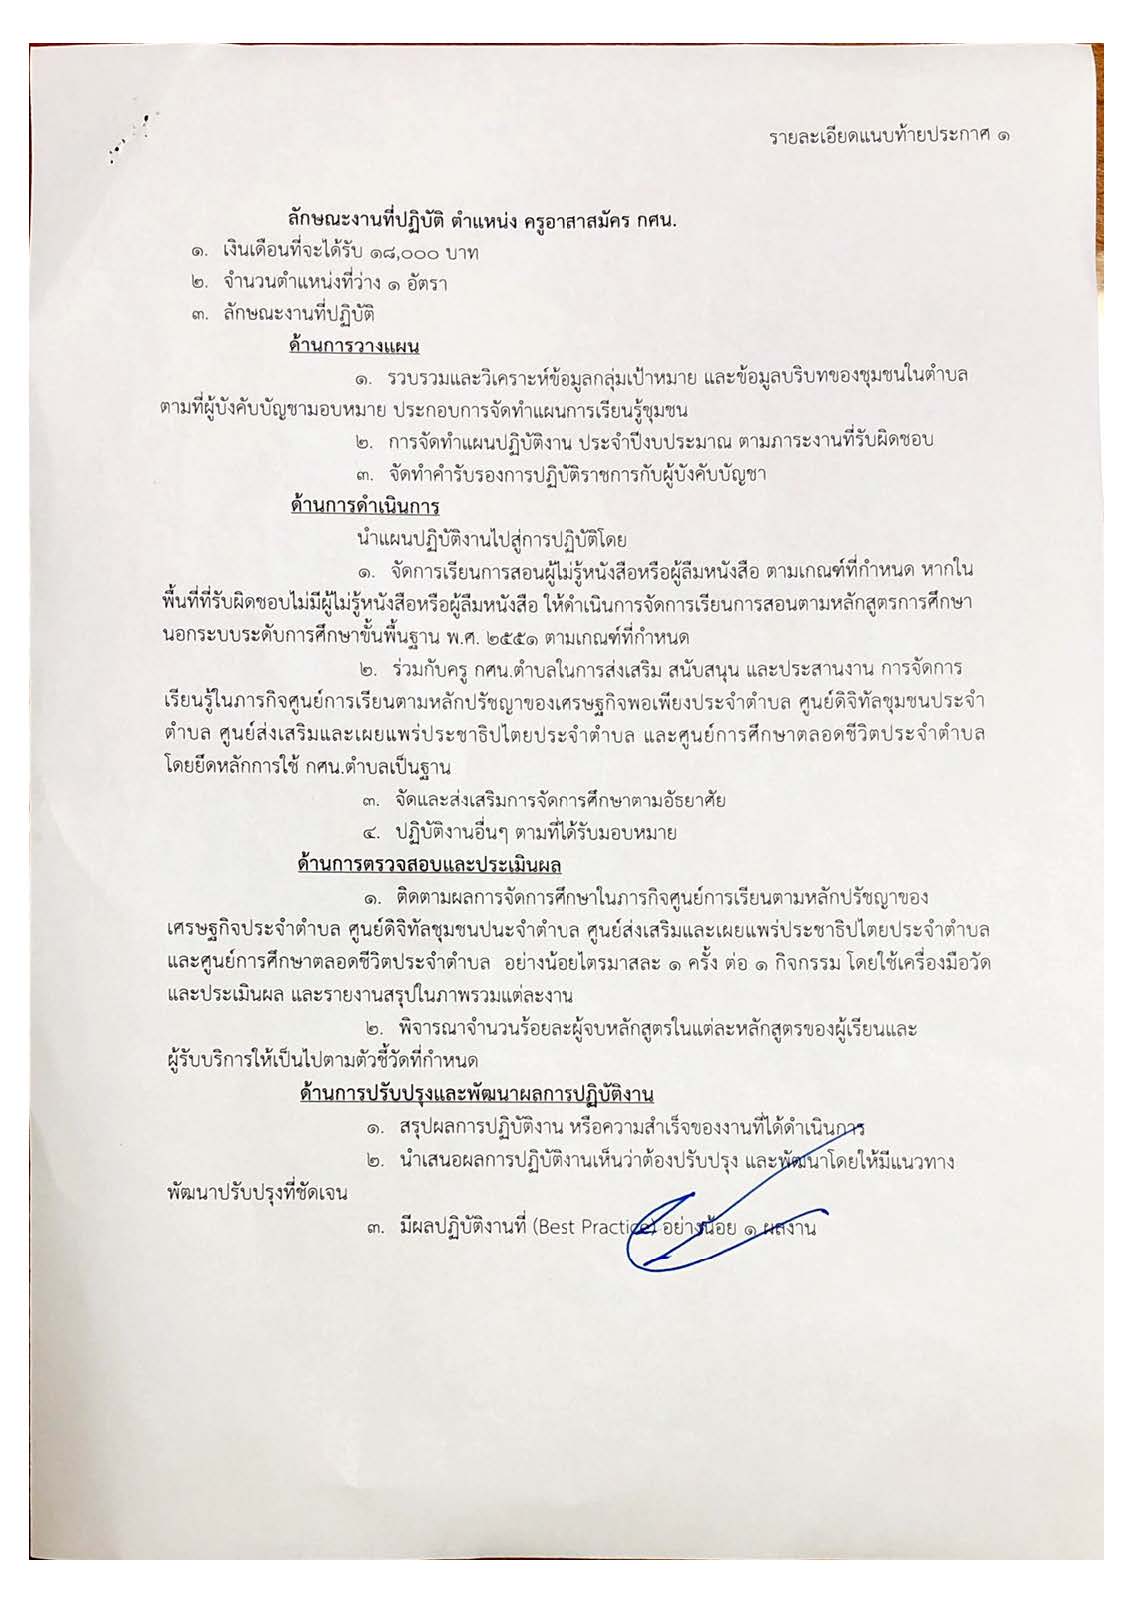 รายละเอียดแนบท้ายประกาศ ๑
ลักษณะงานที่ปฏิบัติ ตำแหน่ง ครูอาสาสมัคร กศน.
๑. เงินเดือนที่จะได้รับ ๑๘,๐๐๐ บาท
๒. จำนวนตำแหน่งที่ว่าง ๑ อัตรา
๓. ลักษณะงานที่ปฏิบัติ
ด้านการวางแผน
๑. รวบรวมและวิเคราะห์ข้อมูลกลุ่มเป้าหมาย และข้อมูลบริบทของชุมชนในตำบล
ตามที่ผู้บังคับบัญชามอบหมาย ประกอบการจัดทำแผนการเรียนรู้ชุมชน
๒. การจัดทำแผนปฏิบัติงาน ประจำปีงบประมาณ ตามภาระงานที่รับผิดชอบ
๓. จัดทำคำรับรองการปฏิบัติราชการกับผู้บังคับบัญชา
ด้านการดำเนินการ
นำแผนปฏิบัติงานไปสู่การปฏิบัติโดย
๑. จัดการเรียนการสอนผู้ไม่รู้หนังสือหรือผู้ลืมหนังสือ ตามเกณฑ์ที่กำหนด หากใน
พื้นที่ที่รับผิดชอบไม่มีผู้ไม่รู้หนังสือหรือผู้ลืมหนังสือ ให้ดำเนินการจัดการเรียนการสอนตามหลักสูตรการศึกษา
นอกระบบระดับการศึกษาขั้นพื้นฐาน พ.ศ. ๒๕๕๑ ตามเกณฑ์ที่กำหนด
๒. ร่วมกับครู กศน.ตำบลในการส่งเสริม สนับสนุน และประสานงาน การจัดการ
เรียนรู้ในภารกิจศูนย์การเรียนตามหลักปรัชญาของเศรษฐกิจพอเพียงประจำตำบล ศูนย์ดิจิทัลชุมชนประจำ
ตำบล ศูนย์ส่งเสริมและเผยแพร่ประชาธิปไตยประจำตำบล และศูนย์การศึกษาตลอดชีวิตประจำตำบล
โดยยึดหลักการใช้ กศน.ตำบลเป็นฐาน
๓. จัดและส่งเสริมการจัดการศึกษาตามอัธยาศัย
๔. ปฏิบัติงานอื่นๆ ตามที่ได้รับมอบหมาย
ด้านการตรวจสอบและประเมินผล
๑. ติดตามผลการจัดการศึกษาในภารกิจศูนย์การเรียนตามหลักปรัชญาของ
เศรษฐกิจประจำตำบล ศูนย์ดิจิทัลชุมชนปนะจำตำบล ศูนย์ส่งเสริมและเผยแพร่ประชาธิปไตยประจำตำบล
และศูนย์การศึกษาตลอดชีวิตประจำตำบล อย่างน้อยไตรมาสละ ๑ ครั้ง ต่อ ๑ กิจกรรม โดยใช้เครื่องมือวัด
และประเมินผล และรายงานสรุปในภาพรวมแต่ละงาน
๒. พิจารณาจำนวนร้อยละผู้จบหลักสูตรในแต่ละหลักสูตรของผู้เรียนและ
ผู้รับบริการให้เป็นไปตามตัวชี้วัดที่กำหนด
ด้านการปรับปรุงและพัฒนาผลการปฏิบัติงาน
๑. สรุปผลการปฏิบัติงาน หรือความสำเร็จของงานที่ได้ดำเนินการ
๒. นำเสนอผลการปฏิบัติงานเห็นว่าต้องปรับปรุง และพัฒนาโดยให้มีแนวทาง
พัฒนาปรับปรุงที่ชัดเจน
๓. มีผลปฏิบัติงานที่ (Best Practice) อย่างน้อย ๑ ผลงาน